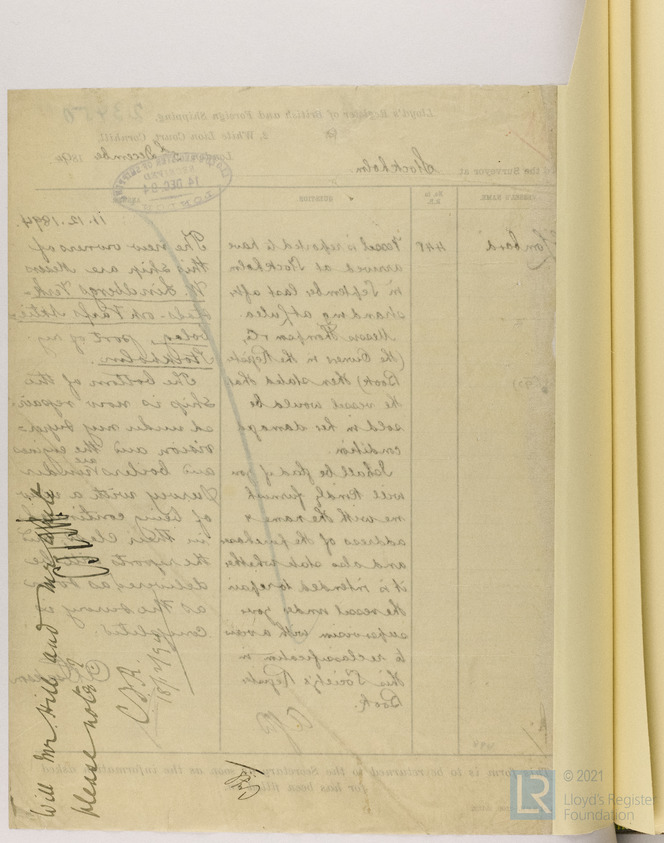 Lloyd's Register of British and Foreign Shipping.
2, White Lion Court, Cornhill,
London, Decembe 1894
To the Surveyor at Stockholm
14 DEC 94
QUESTION
448
Vessel is reported to have
arrived at Stockholm
in September last after
stranding at Lulea.
Messrs Thompson & Co,
(the Owners in the Register
Book) then stated that
the vessel would be
sold in her damaged
condition.
I shall be glad if you
will kindly furnish
me with the name &
address of the purchaser
and also state whether
it is intended to repair
the vessel under your
supervision with a view
to reclassification in
this Society's Register
Book.
11.12.1894
The new owners of
this ship are Messrs
N. Lindbergs Verk-
stads- och Varfs Aktie-
bolag, port of
Stockholm.
The bottom of the
ship is now repair-
ed under my super-
vision and the engines
and boilers are under
survey with a view
of being continued
in their class
the reports
delivered as soon
as the survey is
completed.
Will Mr Hill and
please note
This form is to be returned to the Secretary as soon as the information asked
for has been filled in.
© 2021
LR
Lloyd's Register
Foundation